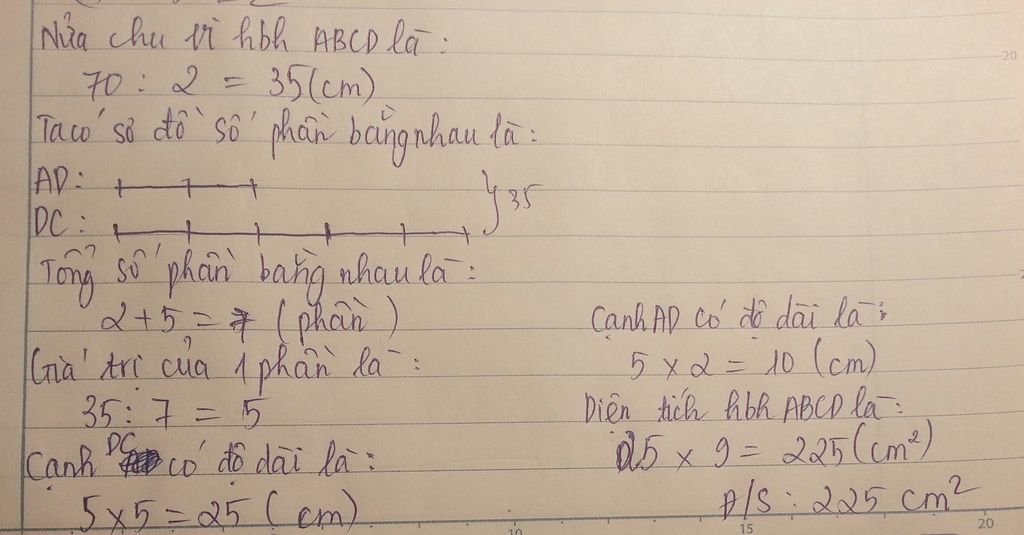 Nửa chu vi hbh ABCD là:
70 : 2 = 35 (cm)
Ta có sơ đồ số phần bằng nhau là:
AD:
DC:
35
Tổng số phần bằng nhau là:
2 + 5 = 7 (phần)
Giá trị của 1 phần là:
35 : 7 = 5
Cạnh DC có độ dài là:
5 x 5 = 25 (cm)
Cạnh AD có độ dài là:
5 x 2 = 10 (cm)
Diện tích hbh ABCD là:
25 x 9 = 225 (cm²)
Đ/S : 225 cm²
20
10
15
20